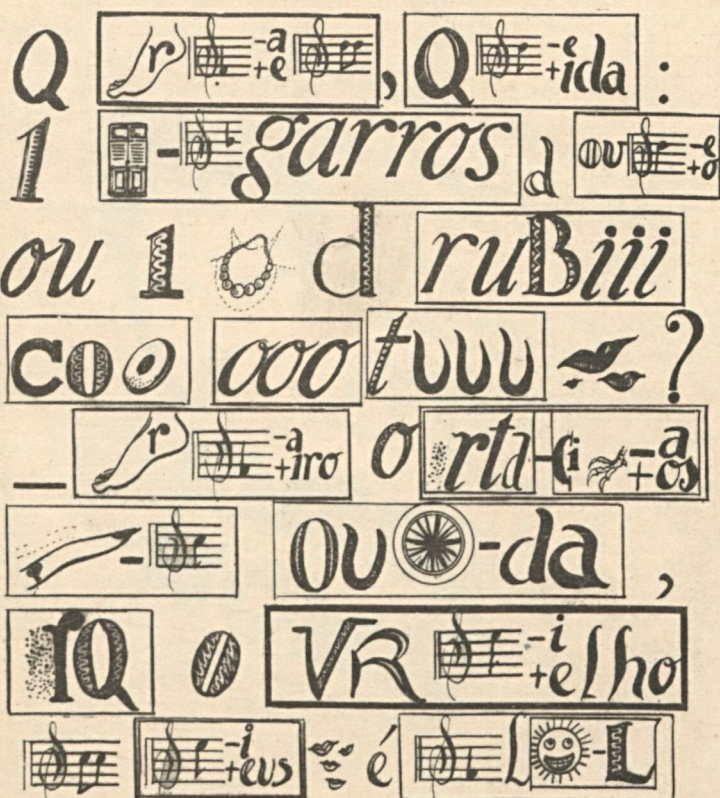 Q r -a +e , Q -e +ida :
1 - garros d ou -e +o
ou 1 d ruBiii
coo ooo tuuu ?
– r -a +iro o rta - ci -a +os
- ou - da ,
rQ o VR -i +elho
-i +eus é L - L